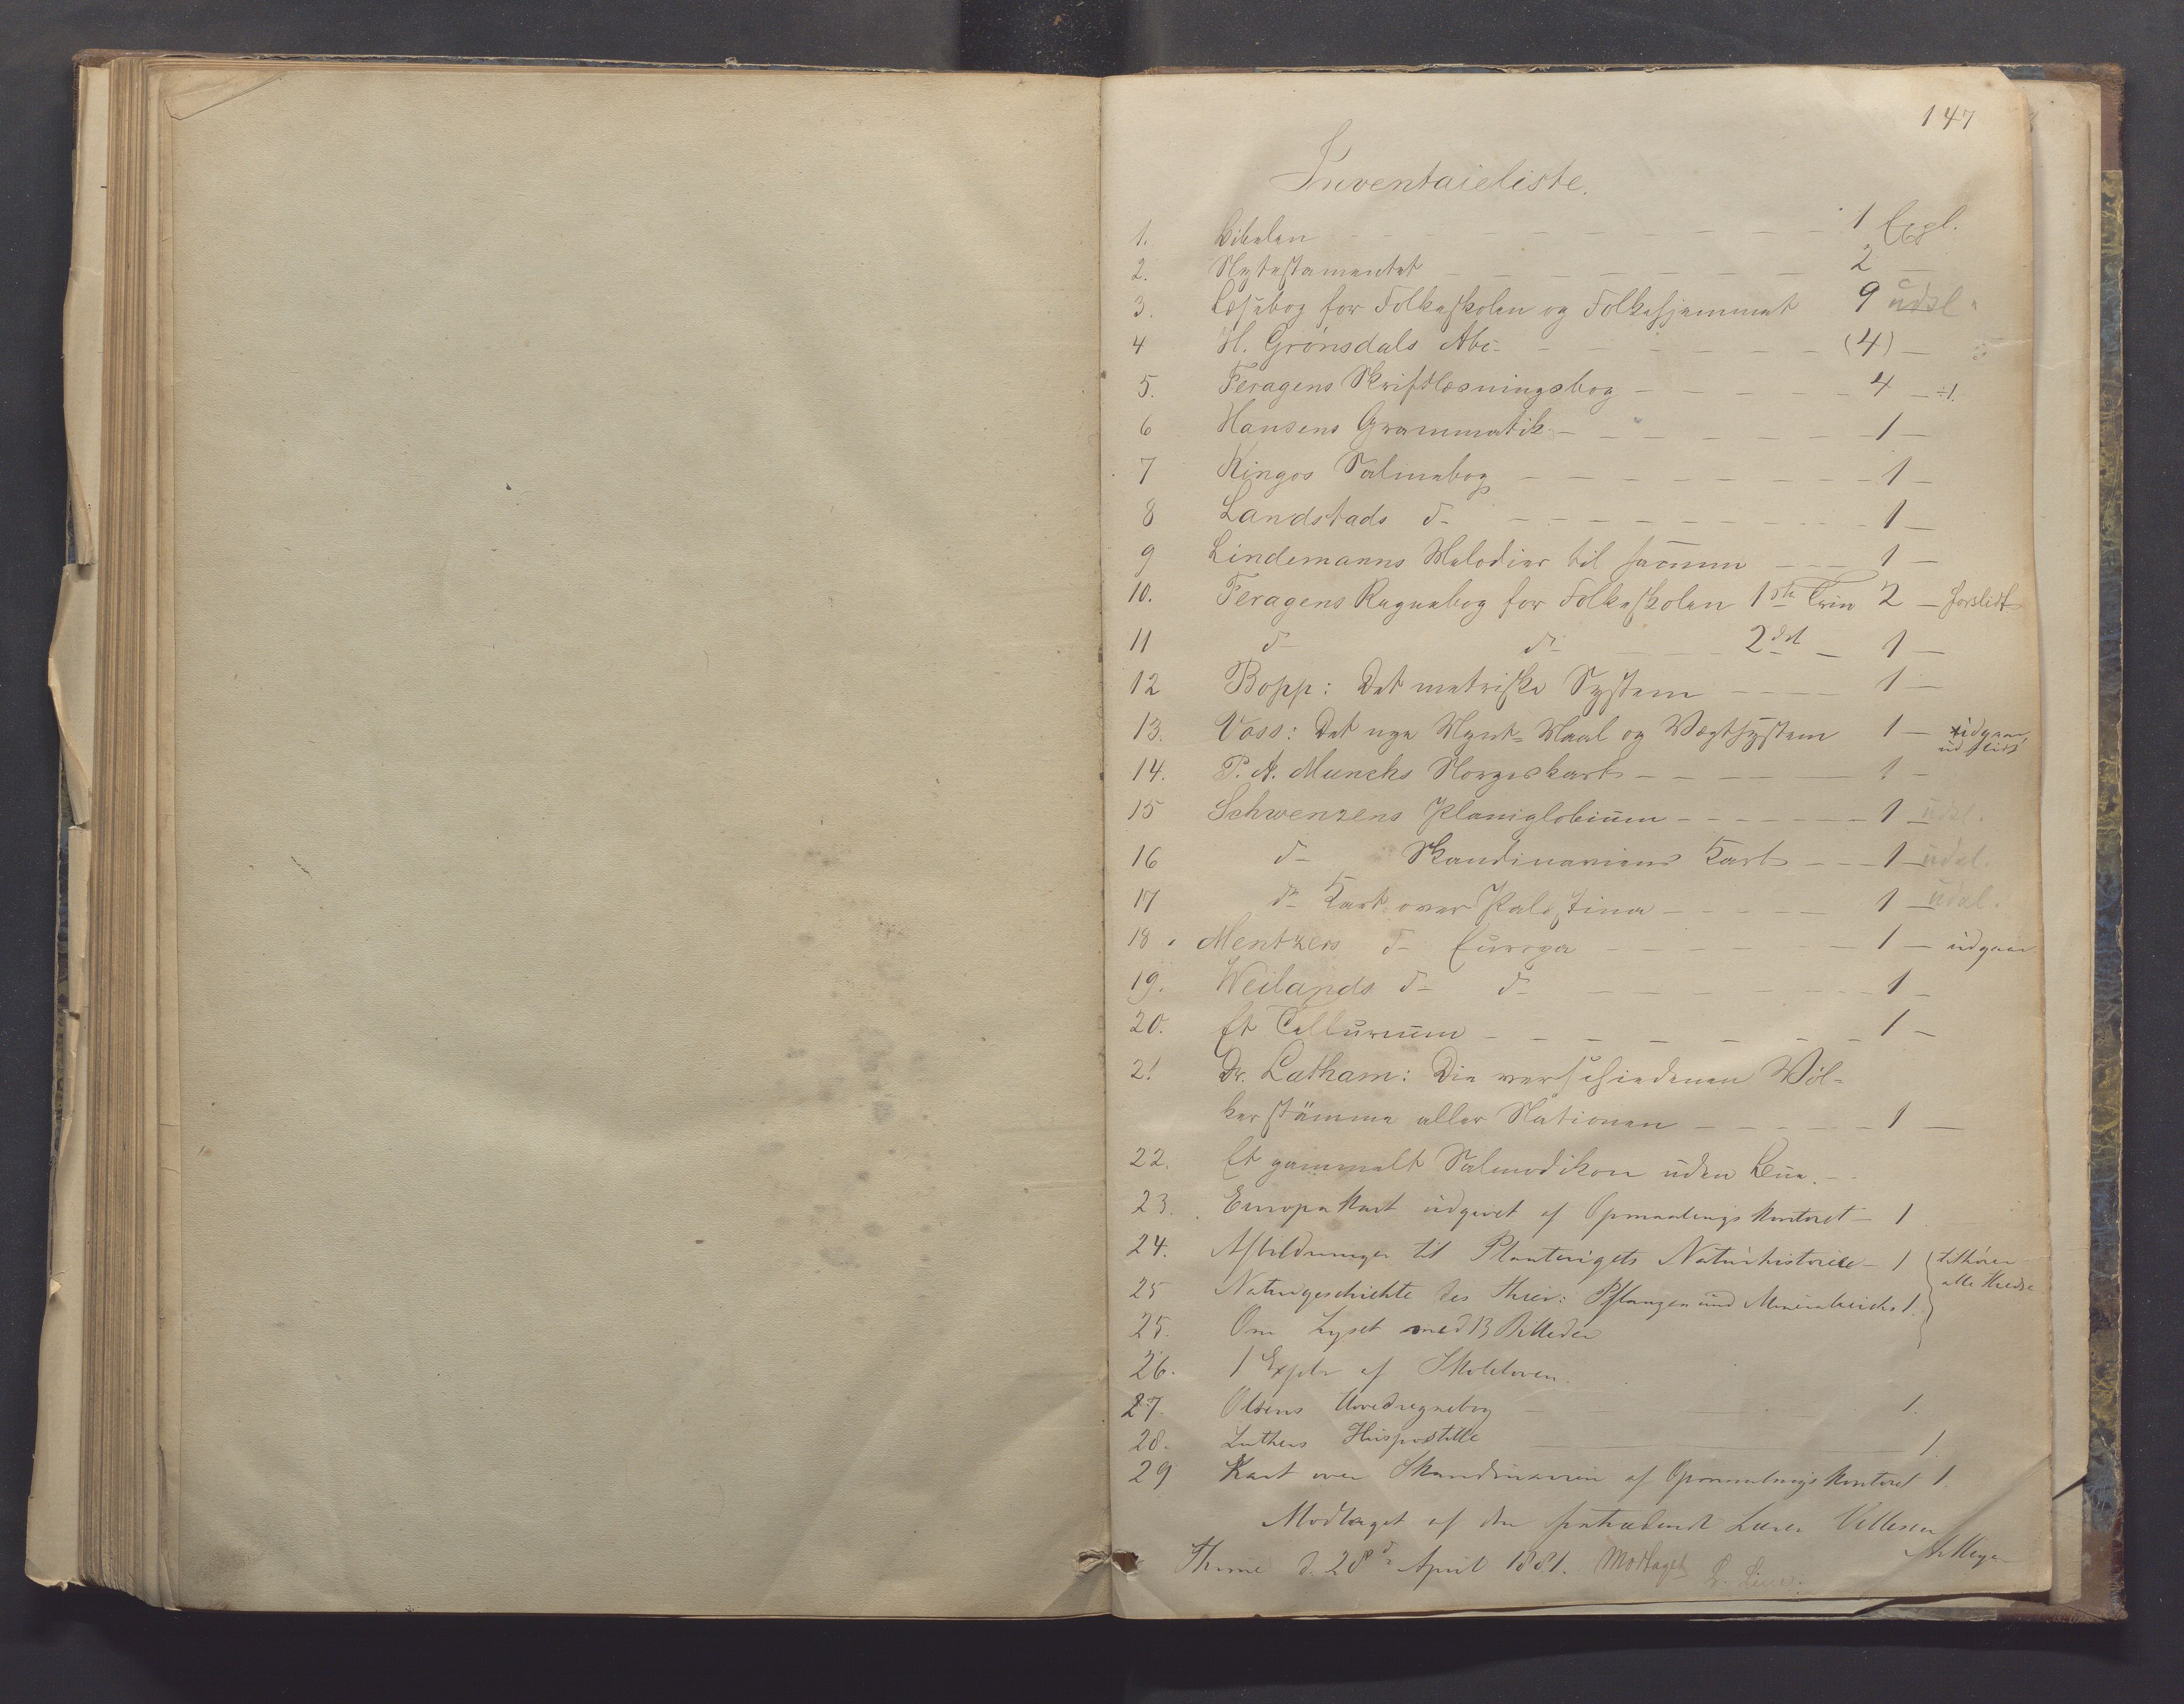 147
Inventarieliste.
1. Bibelen — 1 Expl.
2. Nytestamentet — 2 —
3. Læsebog for Folkeskolen og Folkehjemmet 9 udsl.
4 H. Grønsdals Abc — (4) —
5. Feragens Skriftlæsningsbog — 4 — ÷1.
6 Hansens Grammatik — 1 —
7 Kingos Salmebog — 1 —
8 Landstads do — 1 —
9 Lindemanns Melodier til samme — 1 —
10. Feragens Regnebog for Folkeskolen 1ste Trin 2 — forslidt
11 do do 2det — 1 —
12 Bopp: Det metriske System — 1 —
13. Voss: Det nye Mynt- Maal og Vægtsystem 1 — udgaar,
udslidt
14. P. A. Munchs Norgeskart — 1 —
15 Schwenzens Planiglobium — 1 — udsl.
16 do Skandinaviens Kart — 1 — udsl.
17 do Kart over Palæstina — 1 — udsl.
18 Mentzers do Europa — 1 — udgaar
19. Weilands do do — 1 —
20. Et Tellurium — 1 —
21 Dr. Latham: Die verschiedenen Völ-
kerstämme aller Nationen — 1 —
22. Et gammelt Salmodikon uden Bue. —
23. Europakart udgivet af Opmaalingskontoret — 1
24. Afbildninger til Planterigets Naturhistorie — 1 tilhører
alle Kredse
25 Naturgeschichte des Thier: Pflanzen und Mineralreichs 1.
25. Om Lyset med 13 Billeder
26. 1 Explr af Skoleloven.
27. Olsens Hovedregnebog — 1.
28. Luthers Huspostille — 1.
29 Kart over Skandinavien af Opmaalingskontoret 1.
Modtaget af den fratrædende Lærer Vellesen
Thime d. 28d April 1881. Modtaget